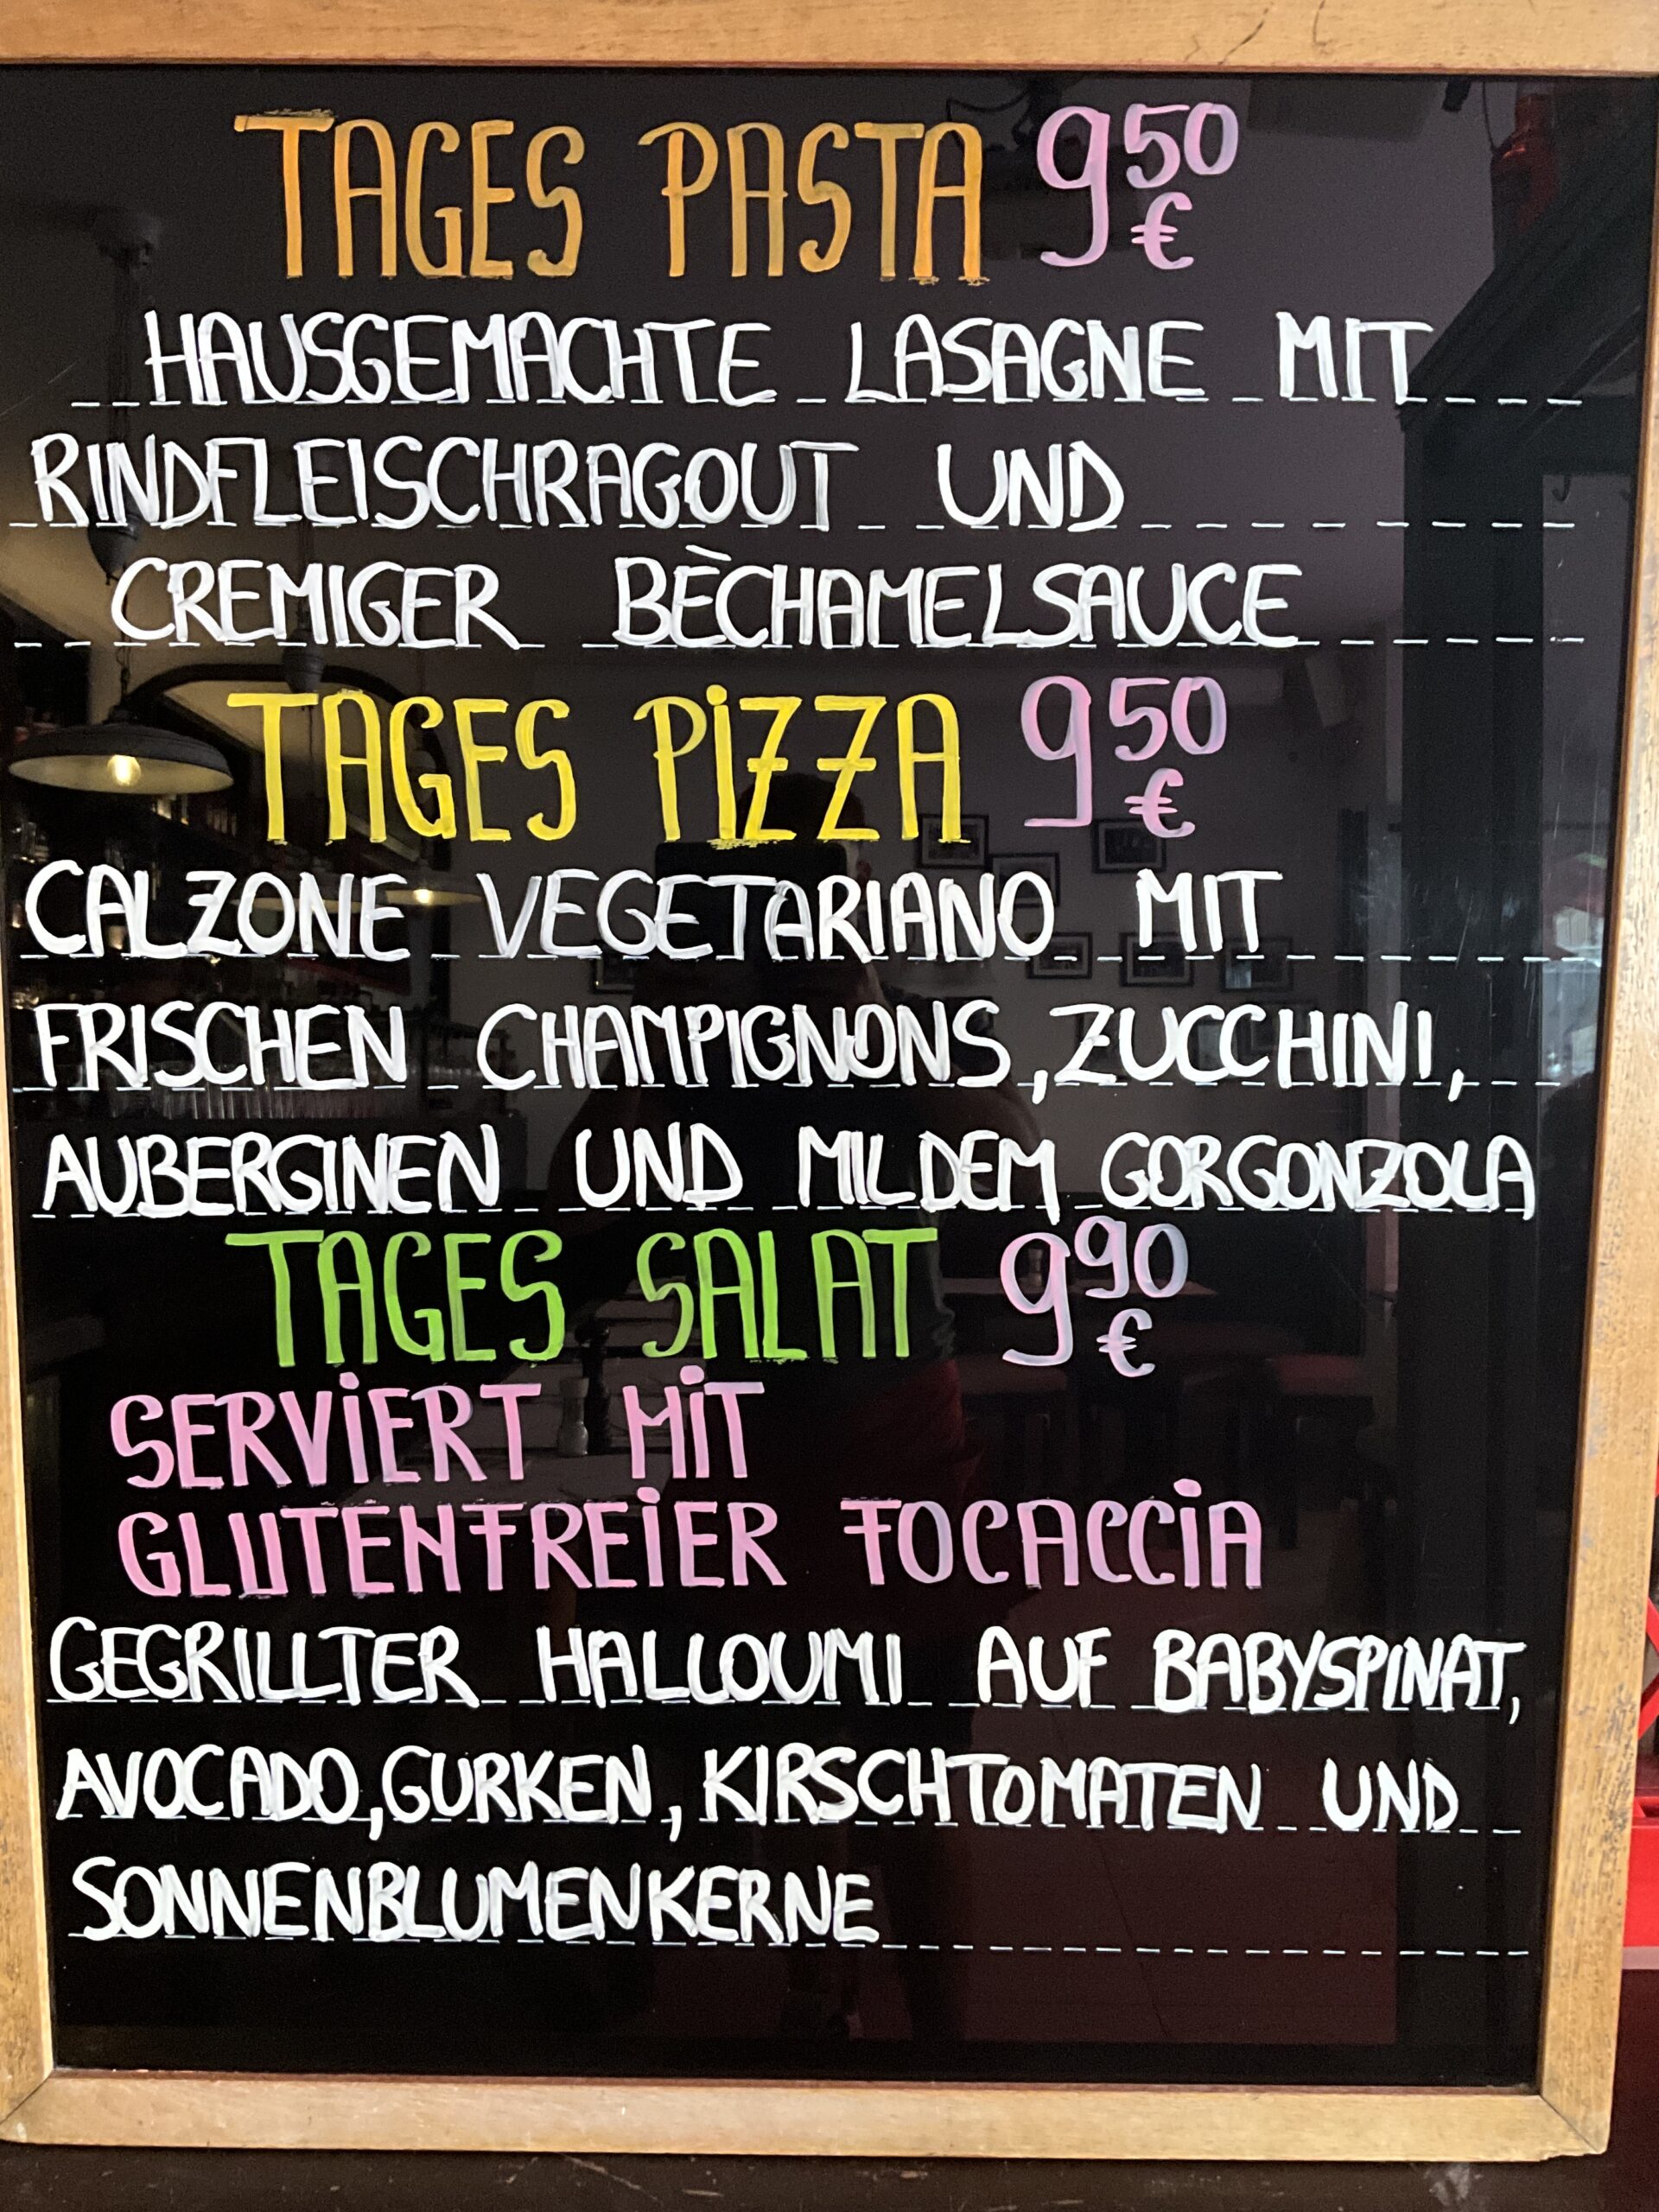 TAGES PASTA 9 50 €
HAUSGEMACHTE LASAGNE MIT
RINDFLEISCHRAGOUT UND
CREMIGER BÈCHAMELSAUCE
TAGES PIZZA 9 50 €
CALZONE VEGETARIANO MIT
FRISCHEN CHAMPIGNONS, ZUCCHINI,
AUBERGINEN UND MILDEM GORGONZOLA
TAGES SALAT 9 90 €
SERVIERT MIT
GLUTENFREIER FOCACCIA
GEGRILLTER HALLOUMI AUF BABYSPINAT,
AVOCADO, GURKEN, KIRSCHTOMATEN UND
SONNENBLUMENKERNE